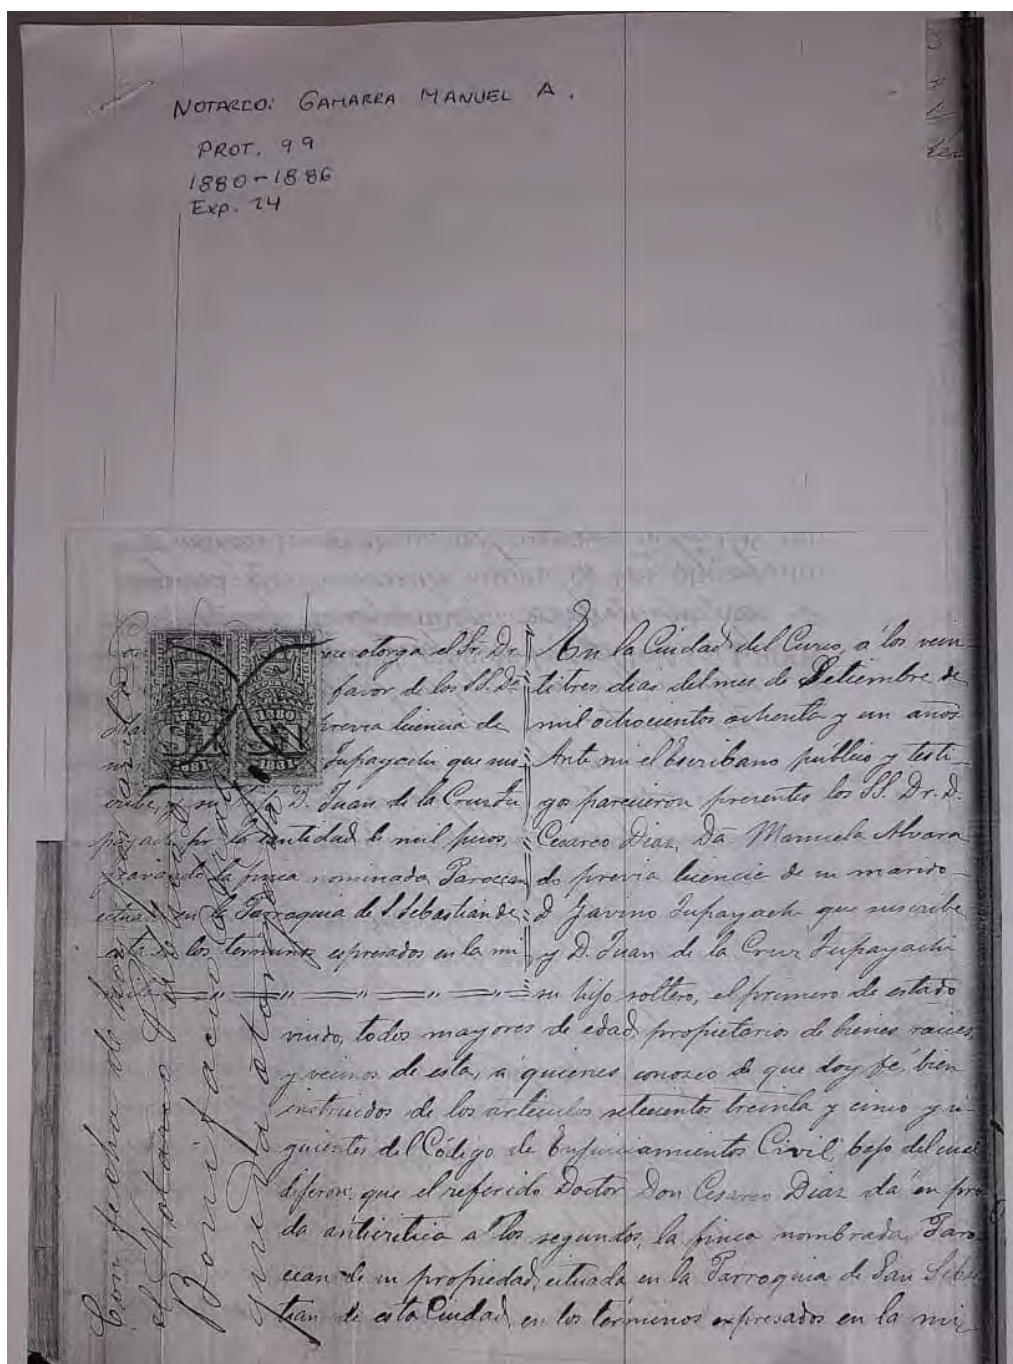 NOTARIO: GAMARRA MANUEL A.
PROT. 99
1880-1886
Exp. 24
otorga el Sr. Dr.
favor de los SS. Da
previa licencia de
Tupayachi que sus
cribe, y su hijo D. Juan de la Cruz Tu
payachi por la cantidad de mil pesos,
gravando la finca nominada Taroccan
cituada en la Parroquia de S. Sebastian de
esta en los terminos espresados en la mi
nuta
En la Ciudad del Cuzco, a los vein
titres dias del mes de Setiembre de
mil ochocientos ochenta y un años.
Ante mi el Escribano público y testi-
gos parecieron presentes los SS. Dr. D.
Cesareo Diaz, Da. Manuela Alvara
do previa licencia de su marido
D. Gavino Tupayachi que suscribe
y D. Juan de la Cruz Tupayachi
su hijo soltero, el primero de estado
viudo, todos mayores de edad, propietarios de bienes raices,
y vecinos de esta, a quienes conosco de que doy fé, bien
instruidos de los articulos setecientos treinta y cinco y si-
guientes del Código de Enjuiciamientos Civil, bajo del cual
dijeron: que el referido Doctor Don Cesareo Diaz dá en pren
da anticritica a los segundos, la finca nombrada Taro
ccan de su propiedad, cituada en la Parroquia de San Sebas
tian de esta Ciudad, en los términos expresados en la mi
Con fecha de hoy
el Notario
Bonifacio
otorga
1880 1880
1881 1881